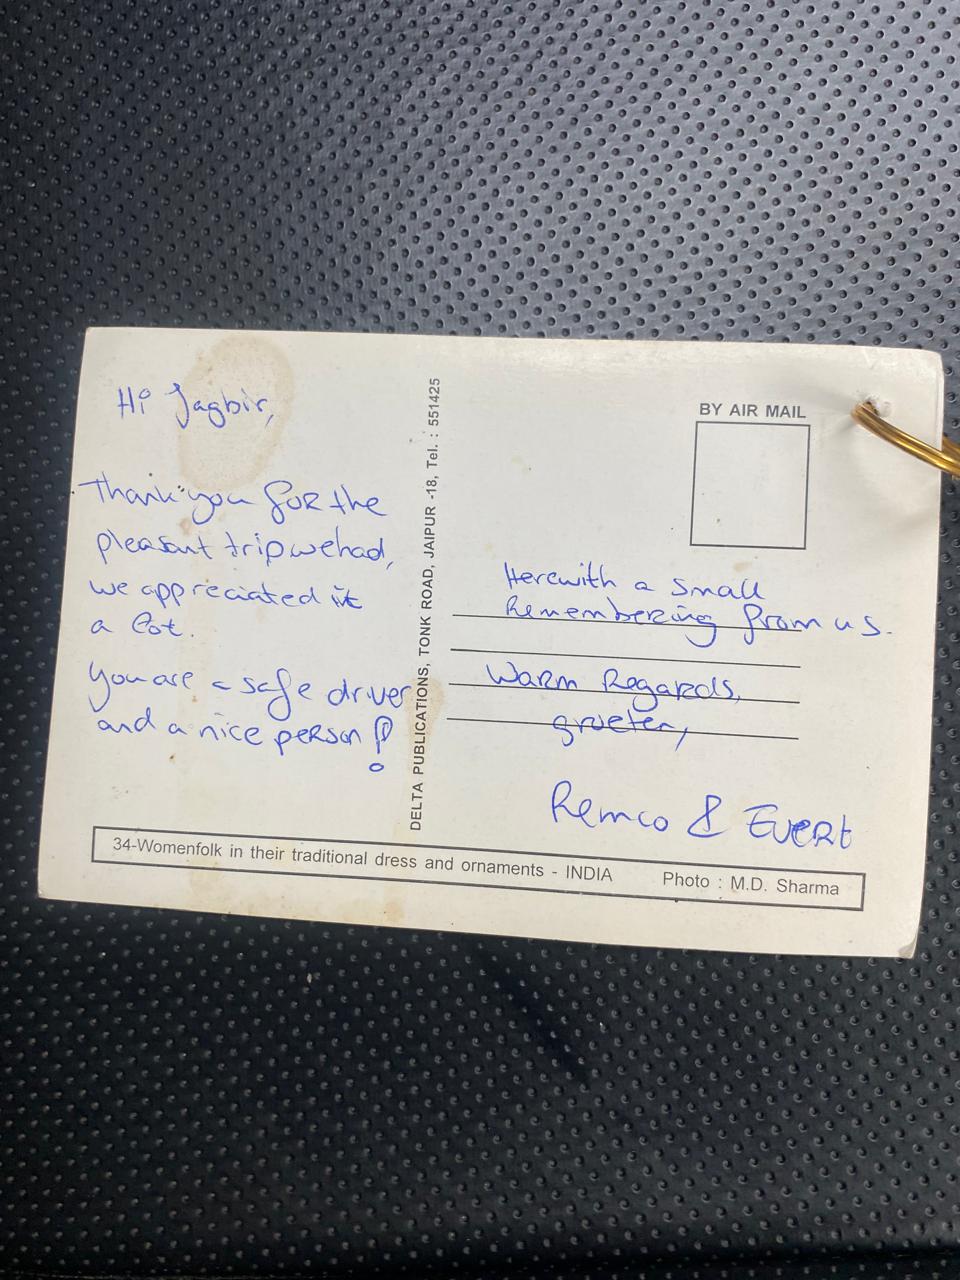 Hi Jagbir,
Thank you for the
pleasant trip we had,
we appreciated it
a lot.
You are a safe driver
and a nice person!
DELTA PUBLICATIONS, TONK ROAD, JAIPUR -18, Tel. : 551425
BY AIR MAIL
Herewith a small
Remembering from us.
Warm Regards,
groeten,
Remco & Evert
34-Womenfolk in their traditional dress and ornaments - INDIA Photo : M.D. Sharma